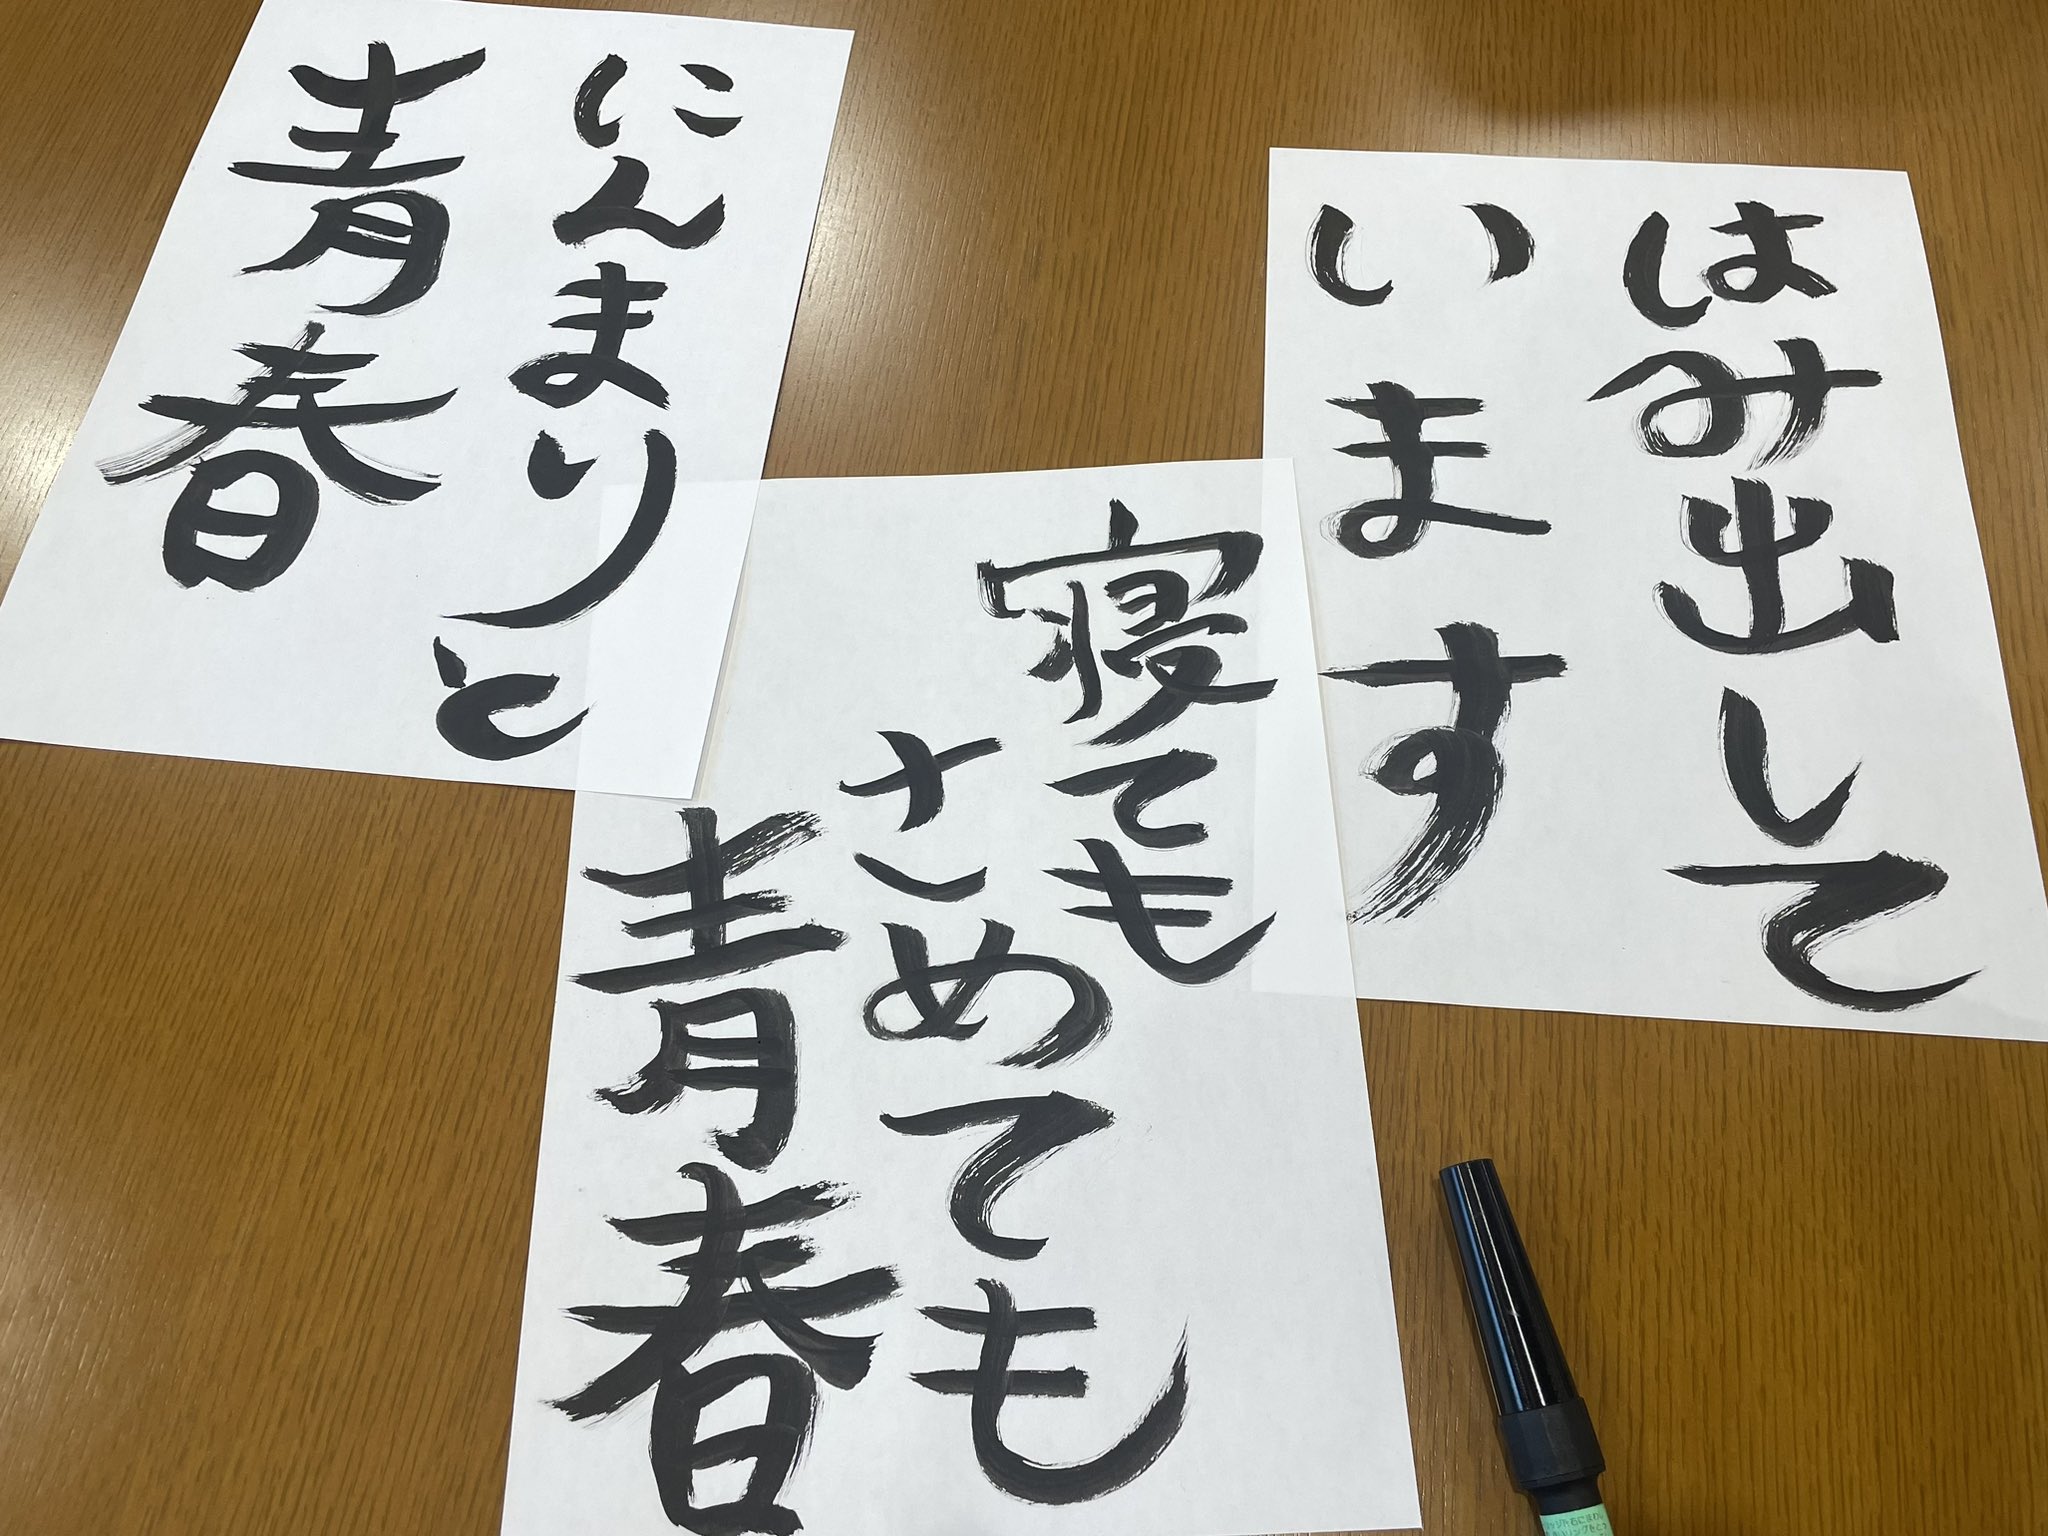 はみ出して
います
寝ても
さめても
青春
にんまりと
青春